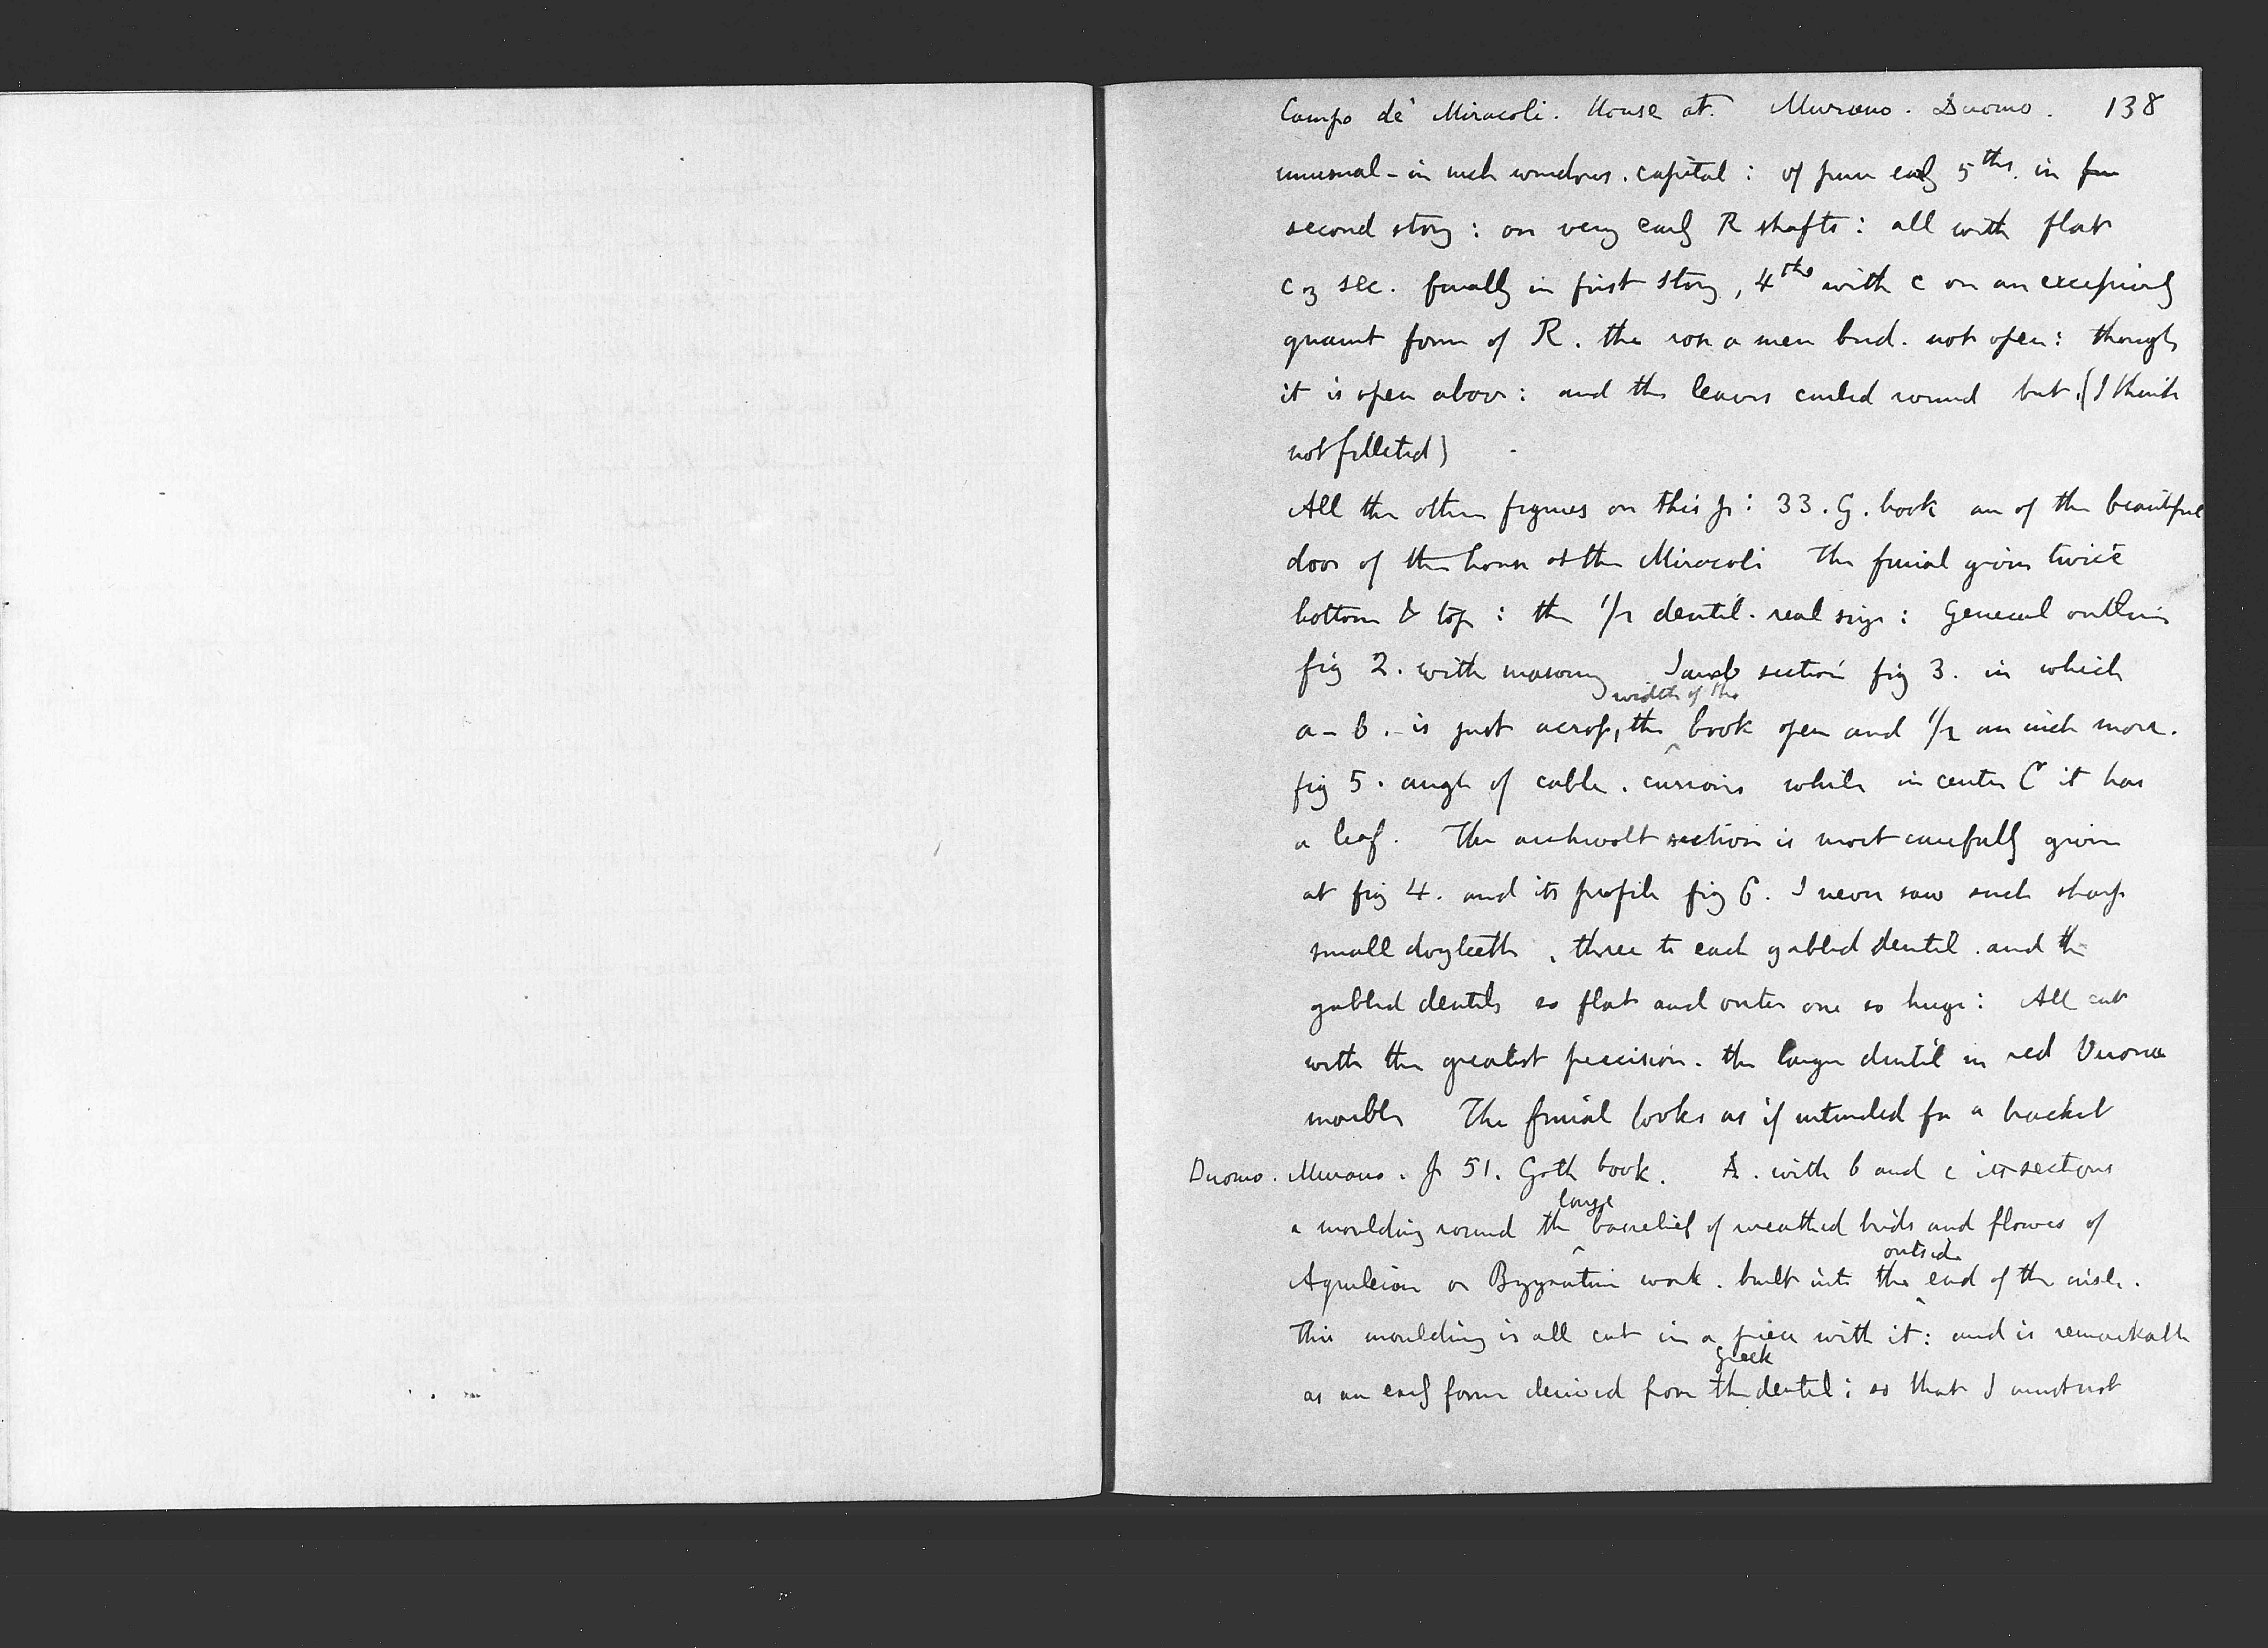 Campo de' Miracoli. House at. Murano. Duomo. 138
unusual - in such windows. capital: of pure early 5ths. in
second story: on very early R shafts: all with flat
sec. finally in first story, 4ths with c on an excessively
quaint form of R. the rose a mere bud. not open: though
it is open above: and the leaves curled round but (I think
not filleted)
All the other figures on this p: 33. G. book are of the beautiful
door of the house at the Miracoli The finial given twice
bottom & top: the 1/2 dentil. real size: General outline
fig 2. with masonry Jamb section fig 3. in which
a - b. is just across, the width of the book open and 1/2 an inch more.
fig 5. angle of cable. curious while in center C it has
a leaf. The archivolt section is most carefully given
at fig 4. and its profile fig 6. I never saw such sharp
small dogteeth, three to each gabled dentil. and the
gabled dentils so flat and outer one so huge: All cut
with the greatest precision. the larger dentil in red Verona
marble The finial looks as if intended for a bracket
Duomo. Murano. p 51. Goth book. A. with b and c its sections
a moulding round the large basrelief of wreathed birds and flowers of
Aquileian or Byzantine work. built into the outside end of the aisle.
This moulding is all cut in a piece with it: and is remarkable
as an early form derived from the greek dentil: so that I must not